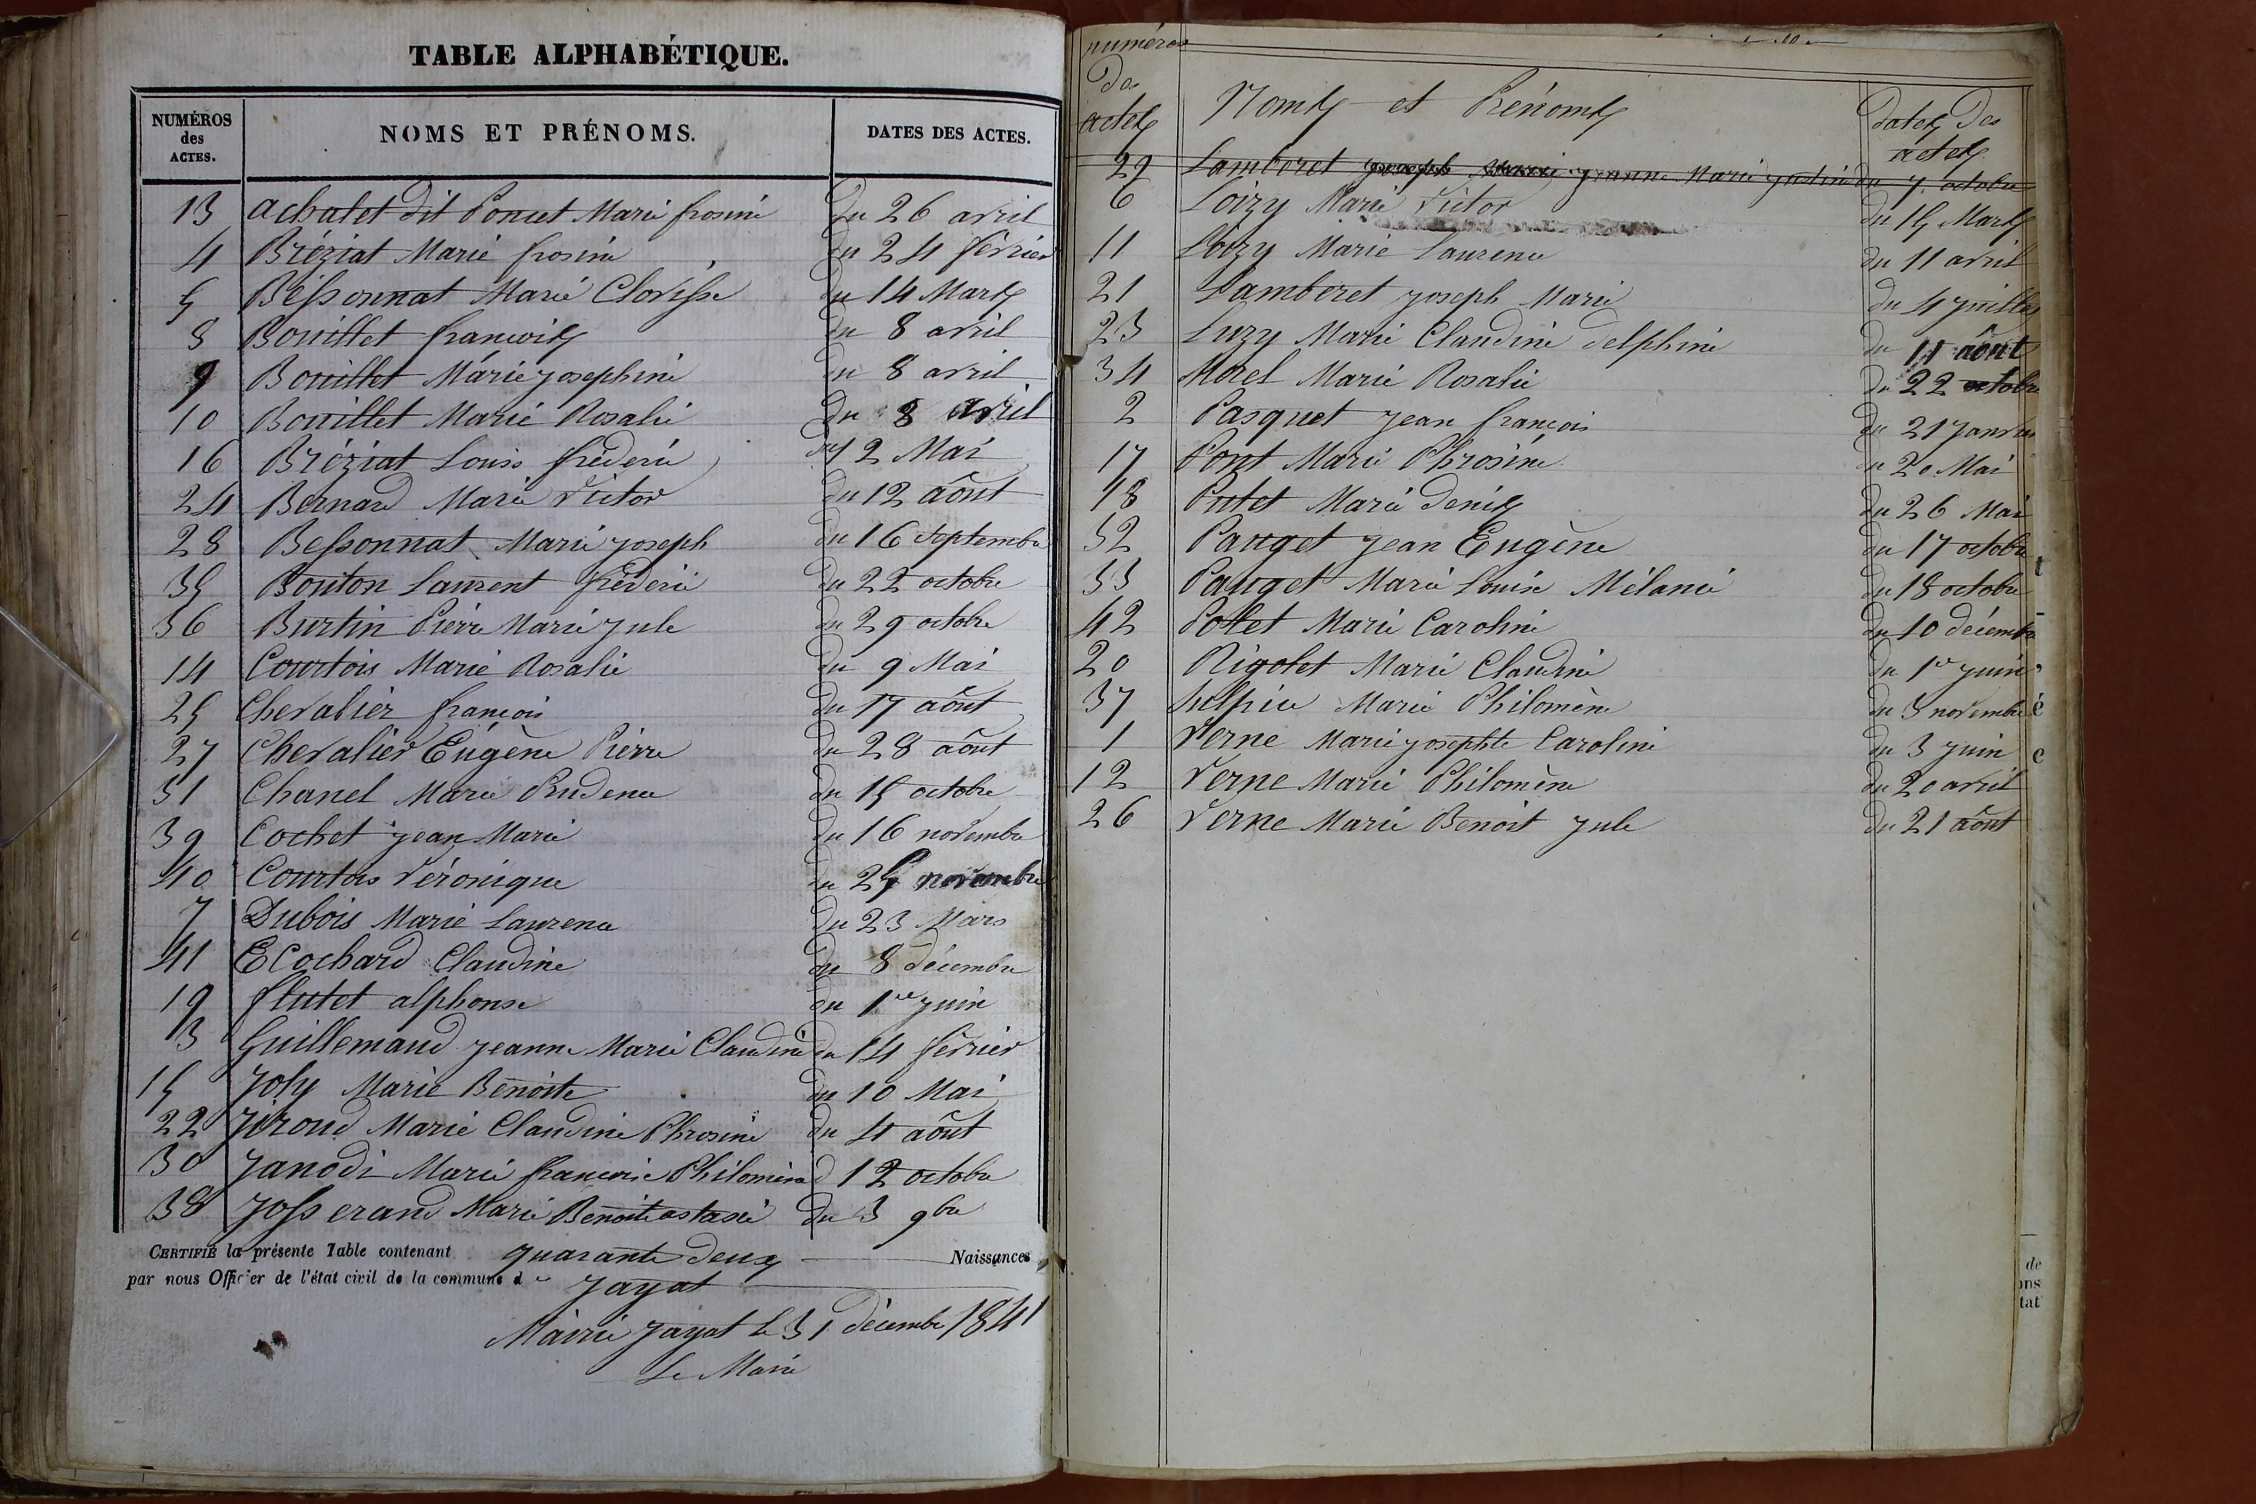 TABLE ALPHABÉTIQUE.
NUMÉROS des ACTES. NOMS ET PRÉNOMS. DATES DES ACTES.
13 achatet dit Poncet Marie frosine du 26 avril
4 Bréziat Marie frosine du 24 février
5 Bessonnat Marie Clorisse du 14 Mars
8 Bouillet françois du 8 avril
9 Bouillet Marie josephine du 8 avril
10 Bouillet Marie Rosalie du 8 avril
16 Bréziat Louis frédéric 12 Mai
24 Bernard Marie Victor du 12 aôut
28 Bessonnat Marie joseph du 16 septembre
35 Bouton Laurent fréderic du 22 octobre
36 Burtin Pierre Marie jule du 29 octobre
14 Courtois Marie Rosalie du 9 Mai
25 Chevalier françois du 17 aôut
27 Chevalier Eugène Pierre du 28 aôut
31 Chanel Marie Prudence du 15 octobre
39 Cochet jean Marie du 16 novembre
40 Courtois Véronique du 25 novembre
7 Dubois Marie Laurence du 23 Mars
41 ECochard Claudine du 8 décembre
19 flutet alphonse du 1er juin
3 Guillemaud jeanne Marie Claudine du 14 février
15 Joly Marie Benoite du 10 Mai
22 Jiroud Marie Claudine Phrosine du 4 aôut
30 Janodi Marie françoise Philomène d 12 octobre
38 Josserand Marie Benoite astasie du 3 9bre
CERTIFIÉ la présente Table contenant quarante deux Naissances
par nous Officier de l'état civil de la commune de Jayat
Mairie Jayat le 31 décembre 1841
Le Maire
numéros des actes Noms et Prénoms dates des actes
29 Lamberet joseph Marie jeanne Marie justine du 7 octobre
6 Loizy Marie Victor du 15 Mars
11 Loizy Marie Laurence du 11 avril
21 Lamberet joseph Marie du 4 juillet
23 Luzy Marie Claudine delphine du 11 aôut
34 Morel Marie Rosalie du 22 octobre
2 Pasquet jean françois du 21 janvier
17 Pont Marie Phrosine du 20 Mai
18 Putet Marie denis du 26 Mai
32 Pauget jean Eugène du 17 octobre
33 Pauget Marie Louise Mélanie du 18 octobre
42 Potet Marie Caroline du 10 décembre
20 Rigolet Marie Claudine du 1er juin
37 Sulpice Marie Philomène du 3 novembre
1 Verne Marie josephte Caroline du 3 juin
12 Verne Marie Philomène du 20 avril
26 Verne Marie Benoit jule du 21 aôut